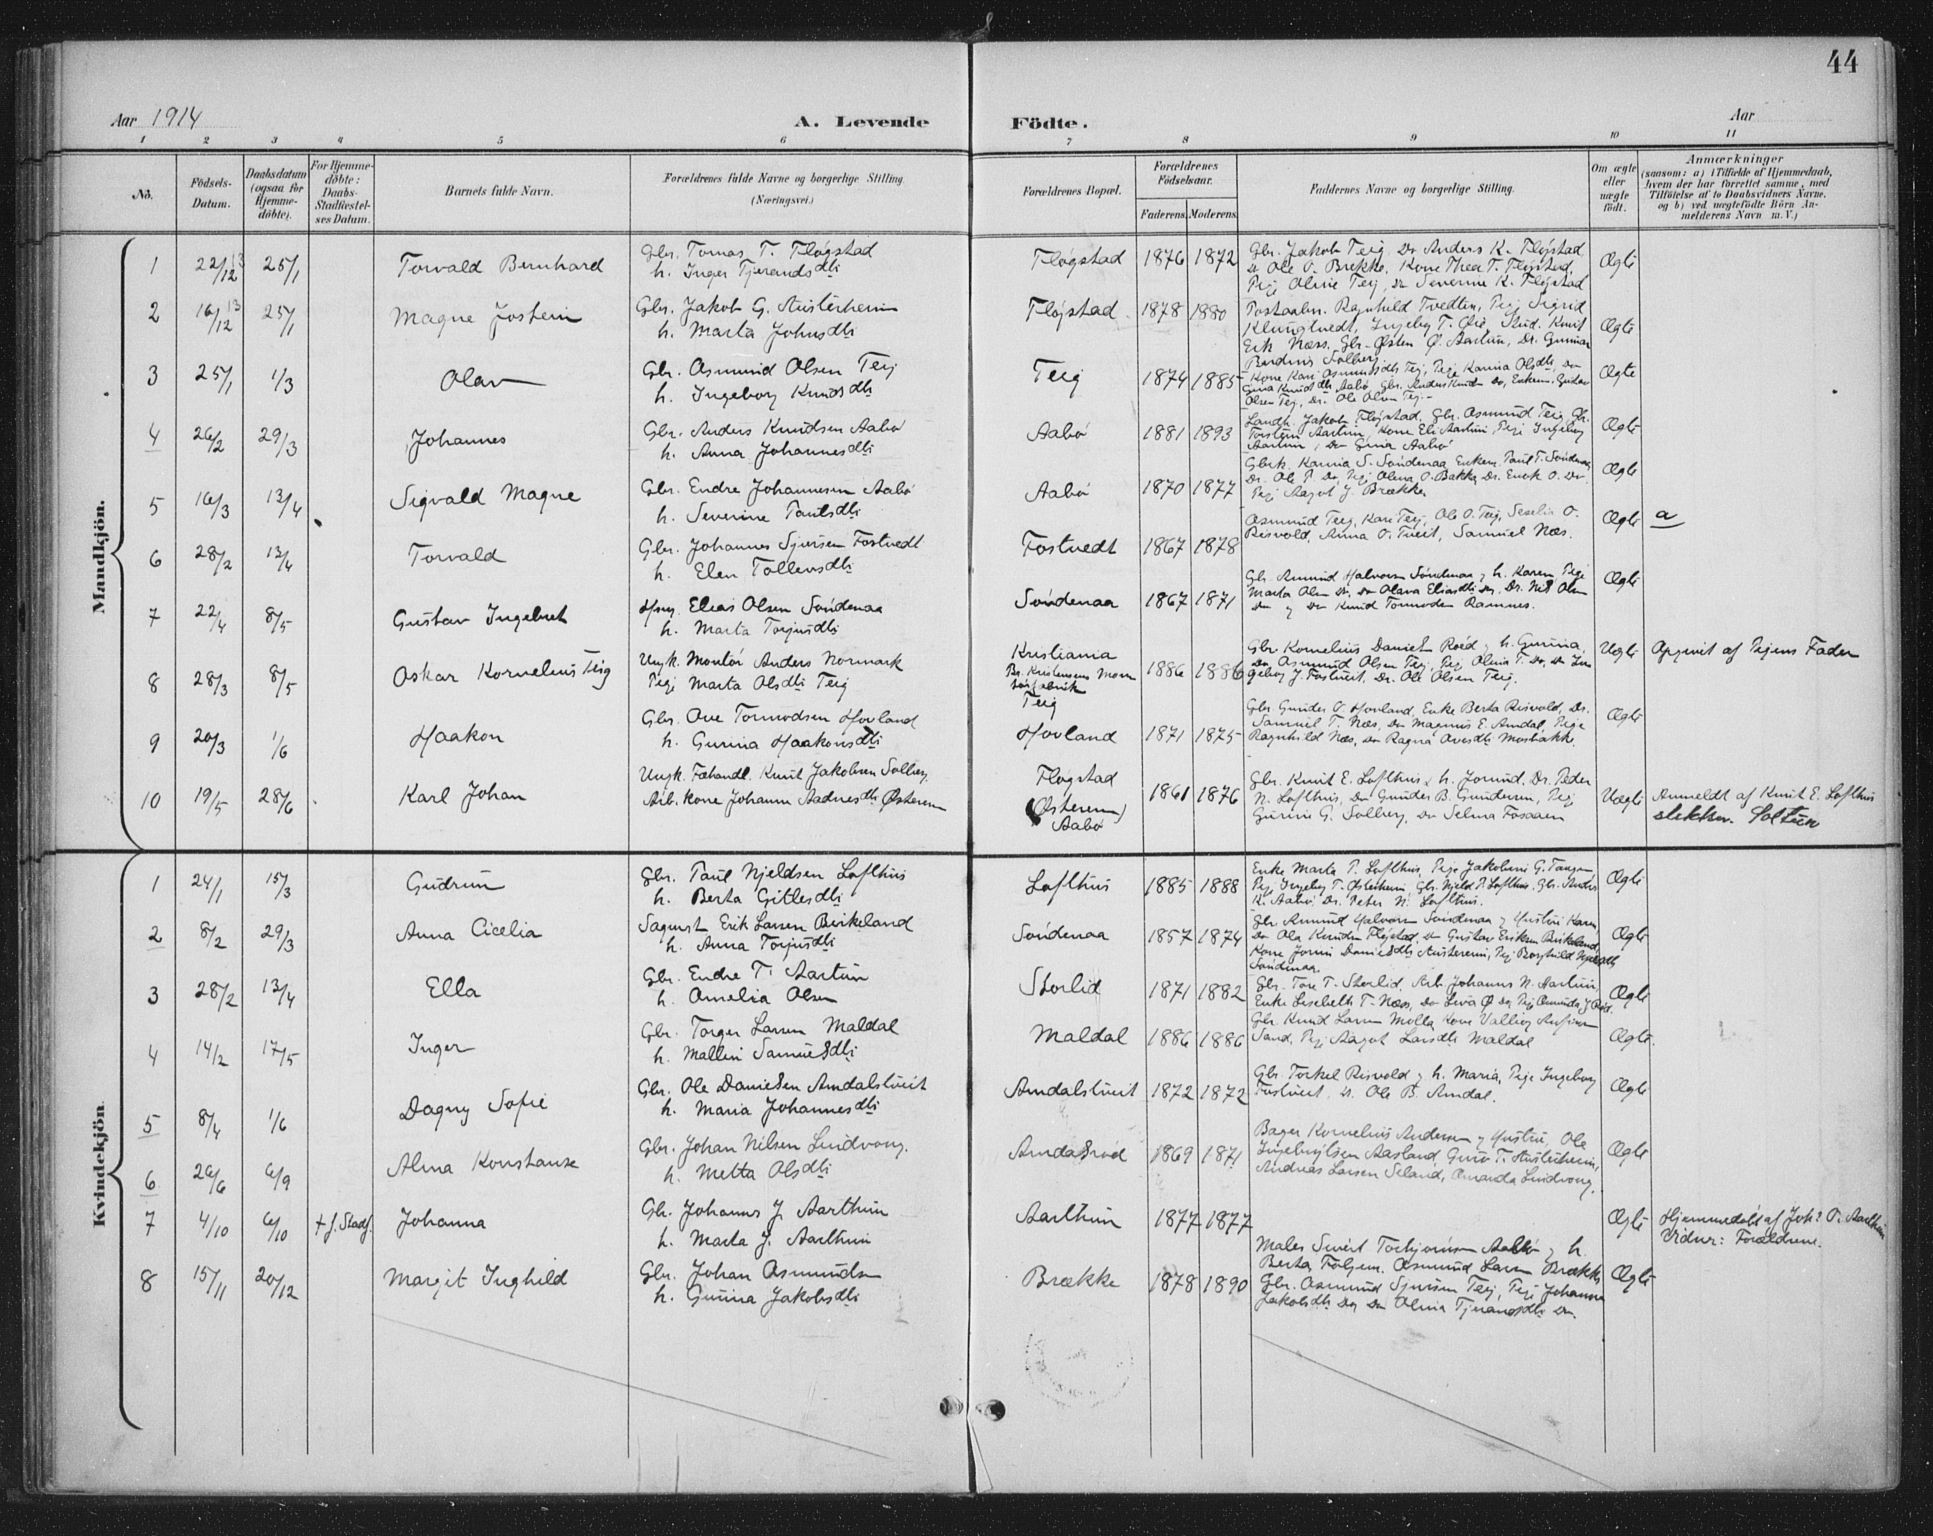 44
Aar 1914
A. Levende Födte.
Aar
1 2 3 4 5 6 7 8 9 10 11
No.
Födsels-Datum.
Daabsdatum (ogsaa for Hjemme-döbte).
For Hjemme-döbte: Daabs-Stadfæstel-ses Datum.
Barnets fulde Navn.
Forældrenes fulde Navne og borgerlige Stilling.
(Næringsvei.)
Forældrenes Bopæl.
Forældrenes Födselsaar.
Faderens. Moderens.
Faddernes Navne og borgerlige Stilling.
Om ægte eller uægte födt.
Anmærkninger
(saasom: a) i Tilfælde af Hjemmedaab,
hvem der har forrettet samme, med
Tilföielse af to Daabsvidners Navne.
og b) ved uægtefödte Börn An-
melderens Navn m. V.)
Mandkjön.
1 22/12 13 25/1 Torvald Bernhard
Gbr. Tomas T. Fløgstad
h. Inger Tjerandsdtr
Fløgstad 1876 1872
Gbr. Jakob Teig Do Anders K. Fløystad
Do Ole O. Brekke, Kone Thea T. Fløistad,
Pige Oline Teig, Do Severine K. Fløystad
Ægte
2 16/12 13 25/1 Magne Jostein
Gbr. Jakob G. Austerheim
h. Marta Johnsdtr
Fløystad 1878 1880
Postaabn. Ragnhild Tvedten, Pige Sigrid
Klungtvedt, Ingebg T. Øie, Stud. Knut
Erk Næss. Gbr. Østen Ø. Aartun, Dr. Gunnar
Solberg
Ægte
3 25/1 1/3 Olav
Gbr. Asmund Olsen Teig
h. Ingeborg Knudsdtr
Teig 1874 1885
Kone Kari Asmundsdtr Teig, Pige Karina Olsdtr, Do
Gina Knudsdtr Aabø, Gbr. Anders Knuds. Do, Enkem. Gustav
Olsen Teig, Dr. Ole Olsen Teig.
Ægte
4 26/2 29/3 Johannes
Gbr. Anders Knudsen Aabø
h. Anna Johannesdtr
Aabø 1881 1893
Landh. Jakob Fløystad, Gbr. Asmund Teig, Gbr.
Torstein Aartun, Kone Eli Aartun, Pige Ingebor
Aartun, Do Gina Aabø
Ægte
5 16/3 13/4 Sigvald Magne
Gbr. Endre Johannesen Aabø
h. Severine Paulsdtr
Aabø 1870 1877
Gbrk. Karina S. Søndenaa, Enkem. Paul T. Søndenaa,
Dr. Ole P. Do, Pige Olena O. Bakka, Dr. Enok O. Do
Pige Aagot J. Brække
Ægte
6 28/2 13/4 Torvald
Gbr. Johannes Sjursen Fostvedt
h. Elen Tollevsdtr
Fostvedt 1867 1878
Asmund Teig, Kari Teig, Ole O. Teig, Seselia O.
Risvold, Anna O. Tveit, Samuel Næs.
Ægte a
7 22/4 8/5 Gustav Ingebret
Hmg. Elias Olsen Søndenaa
h. Marta Torjusdtr
Søndenaa 1867 1871
Gbr. Amund Halvorsen Søndenaa og h. Karen, Pige
Marta Olsen Do, Do Olava Eliasdtr Do, Dr. Nils Olsen
Do og Do Knud Tormodsen Ramnes.
Ægte
8 28/3 8/5 Oskar Kornelius Teig
Ungk. Montør Anders Normark
Pige Marta Olsdtr Teig
Kristiania
Teig
1886 1886
Gbr Kornelius Danielsen Røed og h. Gurina,
Do Asmund Olsen Teig, Pige Olina T. Do, Do In-
geborg J. Fostveit, Dr. Ole Olsen Teig.
Uægte Opgivit af Pigens Fader
9 20/3 1/6 Haakon
Gbr. Ove Tormodsen Hovland
h. Gurina Haakonsdtr
Hovland 1871 1875
Gbr Gunder O. Hovland, Enke Berta Risvold, Dr.
Samuel T. Næs, Do Magnus E. Amdal, Pige
Ragnhild Næs, Do Ragna Ovesdtr Mosbakk.
Ægte
10 19/5 28/6 Karl Johan
Ungk. Fæhandl. Knut Jakobsen Solberg
Arb. kone Johanne Aadnesdtr Østerem
Fløgstad
(Østerem)
Aabø
1861 1876
Gbr. Knut E. Lofthus & h. Jorund, Dr. Peder
N. Lofthus, Do Gunder B. Gundersen, Pige
Gurine G. Solberg, Do Selma Fosaaen
Uægte Anmeldt af Knut E. Lofthus
Kvindekjön.
1 24/1 15/3 Gudrun
Gbr. Paul Njeldsen Lofthus
h. Berta Gitlesdtr
Lofthus 1885 1888
Enke Marta P. Lofthus, Pige Jakobine G. Tangen
Pige Ingeborg T. Østerheim, Gbr. Njeld P. Lofthus, Gbr. Anders
K. Aabø, Dr. Peter N. Lofthus.
Ægte
2 8/2 29/3 Anna Cicelia
Sagmst Erik Larsen Birkeland
h. Anna Torjusdtr
Søndenaa 1857 1874
Gbr. Amund Halvorsen Søndenaa og Hustru Karen,
Do Ola Knudsen Fløistad, Do Gustav Eriksen Birkeland,
Kone Jorun Danielsdtr Austerheim, Pige Borghild Njeldsdtr
Søndenaa.
Ægte
3 28/2 13/4 Ella
Gbr. Endre T. Aartun
h. Amelia Olsen
Storlid 1871 1882
Gbr. Tore T. Storlid, Arb. Johannes N. Aartun,
Enke Lisebeth T. Næss, Do Lena Ø. Do, Pige Asmunda J. Røed.
Ægte
4 14/2 17/5 Inger
Gbr. Torger Larsen Maldal
h. Mallin Samuelsdtr
Maldal 1886 1886
Gbr. Knud Larsen Molla, Kone Vallborg
Sand, Pige Aagot Larsdtr Maldal
Ægte.
5 8/4 1/6 Dagny Sofie
Gbr. Ole Danielsen Amdalstveit
h. Maria Johannesdtr
Amdalstveit 1872 1872
Gbr. Torkel Risvold og h. Maria, Pige Ingeborg
Fostveit, Dr. Ole B. Amdal.
Ægte
6 26/6 6/9 Alma Konstanse
Gbr. Johan Nilsen Lindvong.
h. Metta Olsdtr
Amdalsrød 1869 1871
Bager Kornelius Andersen og Hustru, Ole
Ingebrigtsen Aasland, Guro T. Austerheim,
Andreas Larsen Seland, Amanda Lindvong.
Ægte
7 4/10 6/10 + f. Stadf. Johanna
Gbr. Johannes J. Aarthun
h. Marta J. Aarthun
Aarthun 1877 1877
Ægte Hjemmedøbt af Joh.s O. Aarthun
Vidner: Forældrene.
8 15/11 20/12 Margit Inghild
Gbr. Johan Asmundsen
h. Gurina Jakobsdtr
Brække 1878 1890
Maler Sivert Torbjørnsen Aabø og h.
Berta, Følgem. Asmund Larsen Brække
Gbr. Asmund Sjursen Teig, Pige Johanna
Jakobsdtr Do, Do Olina Tjerandsdtr Do.
Ægte